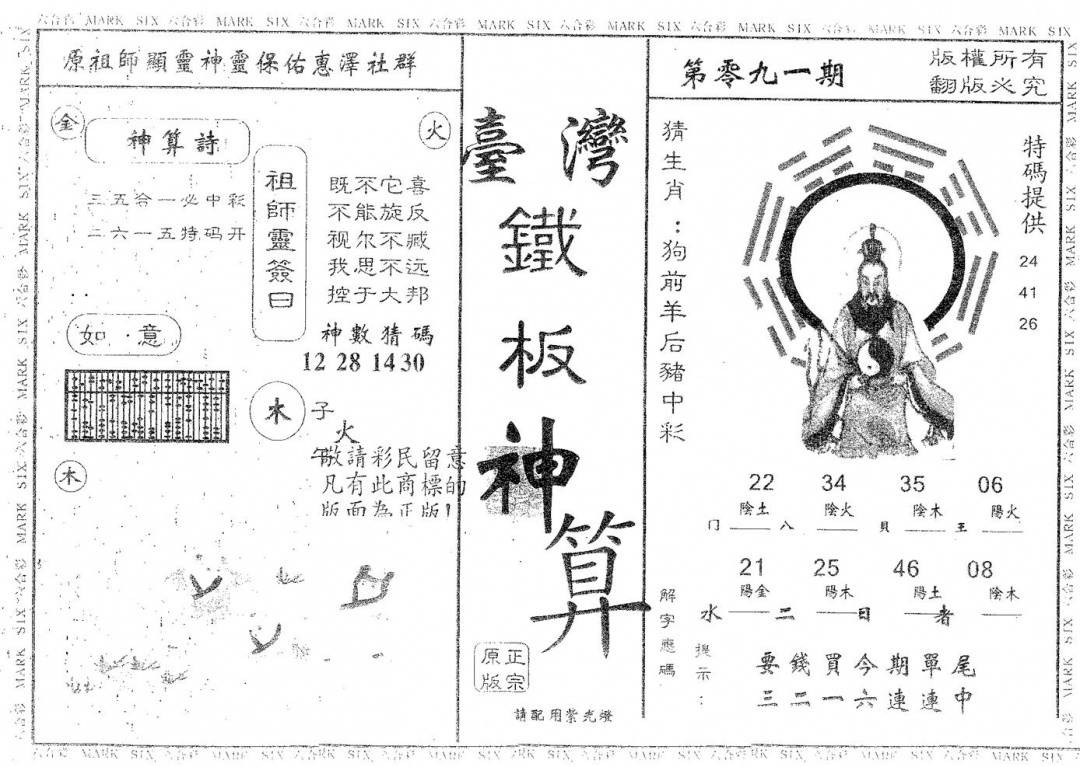 六合彩 MARK SIX 六合彩 MARK SIX 六合彩 MARK SIX 六合彩 MARK SIX 六合彩 MARK SIX 六合彩 MARK SIX 六合彩 MARK SIX 六合彩 MARK SIX
原祖師顯靈神靈保佑惠澤社群
金
神算詩
火
三五合一必中彩
二六一五特码开
祖師靈簽曰
既不它喜
不能旋反
视尔不臧
我思不远
控于大邦
神數猜碼
12 28 14 30
如·意
木
子
火
午
敬請彩民留意
凡有此商標的
版面為正版!
木
臺灣
鐵
板
神
算
正宗
原版
請配用紫光燈
第零九一期
版權所有
翻版必究
猜生肖：狗前羊后豬中彩
特碼提供
24
41
26
22 34 35 06
陰土 陰火 陰木 陽火
门 八 貝 王
21 25 46 08
陽金 陽木 陽土 陰木
水 二 日 者
解字應碼
提示：
要錢買今期單尾
三二一六連連中